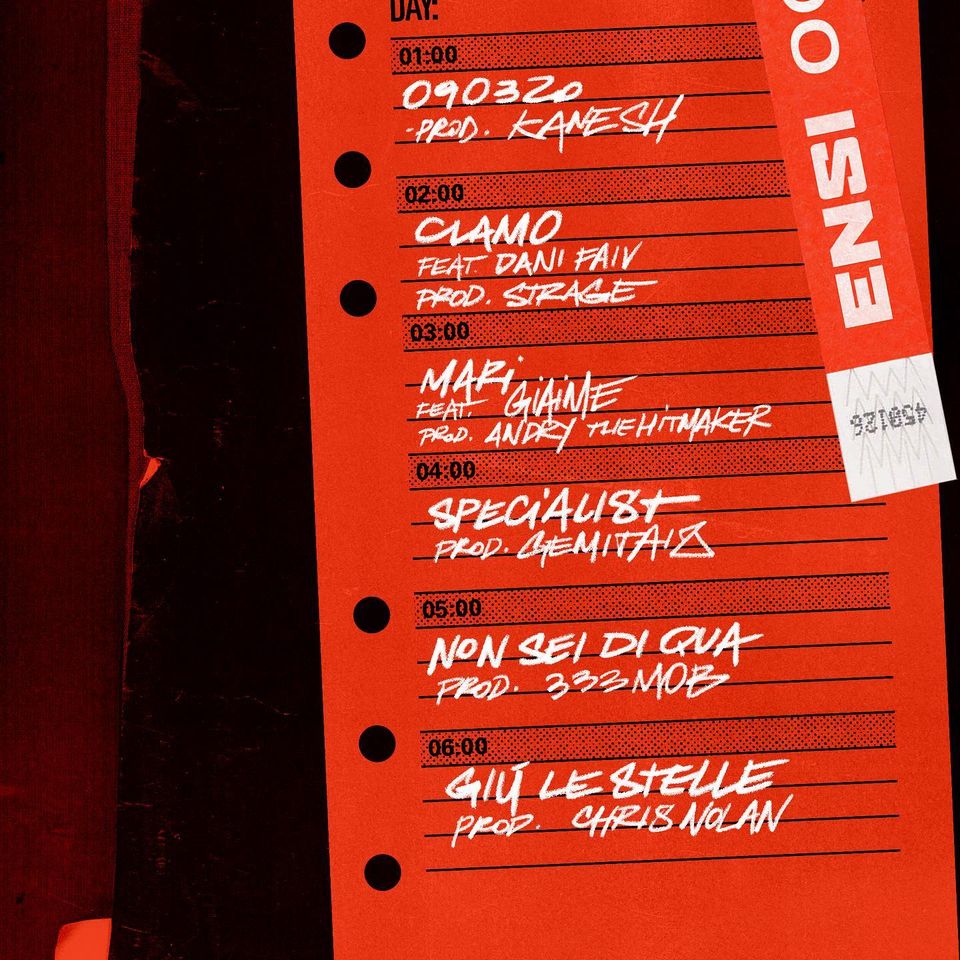 DAY:
01:00
090320
-PROD. KANESH
02:00
CLAMO
FEAT. DANI FAIV
PROD. STRAGE
03:00
MARi
FEAT. GIAiME
PROD. ANDRY THEHITMAKER
04:00
SPECiALIST
PROD. GEMITAIZ
05:00
NON SEI DI QUA
PROD. 333MOB
06:00
GIÚ LE STELLE
PROD. CHRIS NOLAN
ENSI
459126